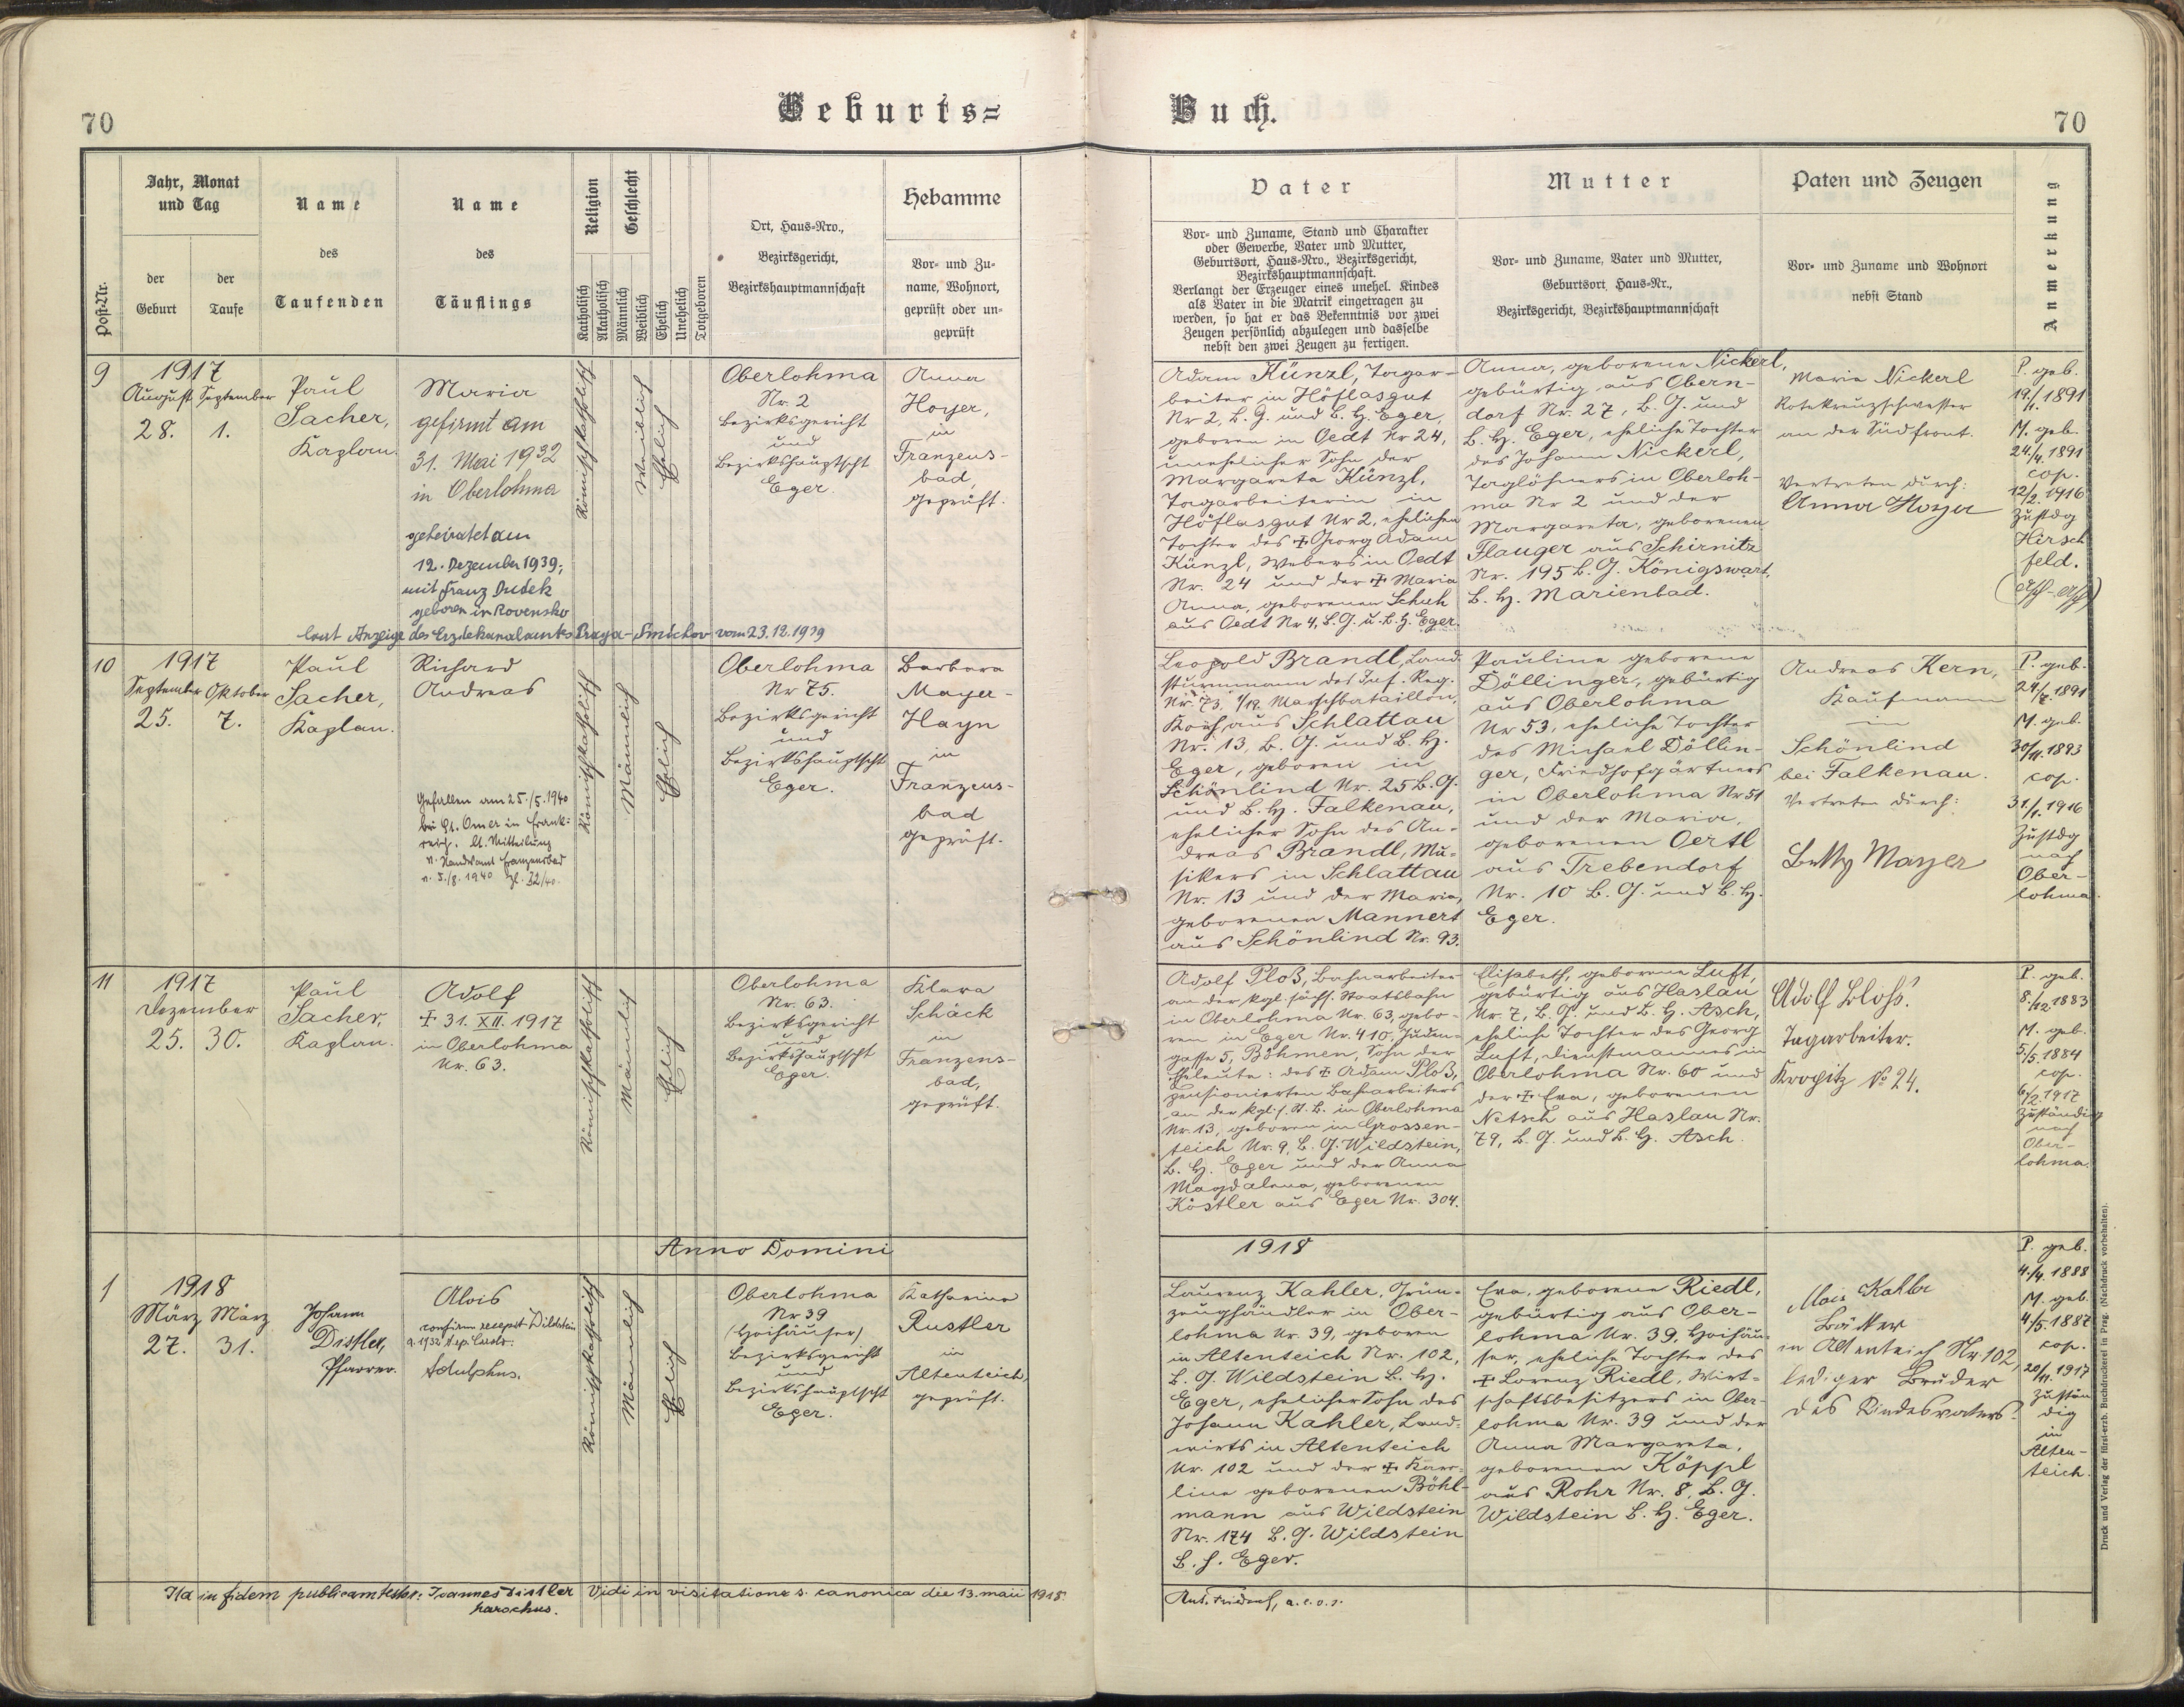 70
Geburts=
Jahr, Monat
und Tag
der
Geburt
der
Taufe
Post-Nr.
Name
des
Taufenden
Name
des
Täuflings
Religion
Katholisch
Akatholisch
Geschlecht
Männlich
Weiblich
Ehelich
Unehelich
Totgeboren
Ort, Haus-Nro.,
Bezirksgericht,
Bezirkshauptmannschaft
Hebamme
Vor- und Zu-
name, Wohnort,
geprüft oder un-
geprüft
9
1917
August September
28. 1.
Paul
Sacher,
Kaplan.
Maria
gefirmt am
31. Mai 1932
in Oberlohma
geheiratet am
12. Dezember 1939,
mit Franz Dudek
geboren in Rovensko
laut Anzeige des Erzdekanalamts Praga-Smichov vom 23.12.1939
Römischkatholisch
Weiblich
Ehelich
Oberlohma
Nr. 2
Bezirksgericht
und
Bezirkshauptscht
Eger.
Anna
Hoyer,
in
Franzens-
bad,
geprüft.
10
1917
September Oktober
25. 7.
Paul
Sacher,
Kaplan.
Richard
Andreas
Gefallen am 25./5.1940
bei St. Omer in Frank-
reich. lt. Mitteilung
Franzensbad
v. 5./8. 1940 Zl. 32/40.
Römischkatholisch
Männlich
Ehelich
Oberlohma
Nr 75.
Bezirksgericht
und
Bezirkshauptscht
Eger.
Barbara
Mayer-
Hayn
in
Franzens-
bad
geprüft.
11
1917
Dezember
25. 30.
Paul
Sacher,
Kaplan.
Adolf
✝ 31. XII. 1917
in Oberlohma
Nr. 63.
Römischkatholisch
Männlich
Ehelich
Oberlohma
Nr. 63.
Bezirksgericht
und
Bezirkshauptscht
Eger.
Klara
Schäck
in
Franzens-
bad,
geprüft.
Anno Domini
1
1918
März März
27. 31.
Johann
Distler,
Pfarrer.
Alois
confirm recepit Wildstein
a. 1932
Adulphus.
Römischkatholisch
Männlich
Ehelich
Oberlohma
Nr 39
(Hoihäuser)
Bezirksgericht
und
Bezirkshauptscht
Eger.
Katharina
Rustler
in
Altenteich,
geprüft.
Ita in fidem publicam testor: Joannes Distler
parochus.
Vidi in visitatione s. canonica die 13. maii 1918.
Buch.
70
Vater
Vor- und Zuname, Stand und Charakter
oder Gewerbe, Vater und Mutter,
Geburtsort, Haus-Nro., Bezirksgericht,
Bezirkshauptmannschaft.
Verlangt der Erzeuger eines unehel. Kindes
als Vater in die Matrik eingetragen zu
werden, so hat er das Bekenntnis vor zwei
Zeugen persönlich abzulegen und dasselbe
nebst den zwei Zeugen zu fertigen.
Mutter
Vor- und Zuname, Vater und Mutter,
Geburtsort, Haus-Nr.,
Bezirksgericht, Bezirkshauptmannschaft
Paten und Zeugen
Vor- und Zuname und Wohnort
nebst Stand
Anmerkung
Adam Künzl, Tagar-
beiter in Höflasgut
Nr 2, B. G. und B. H. Eger,
geboren in Oedt Nr 24,
unehelicher Sohn der
Margareta Künzl,
Tagarbeiterin in
Höflasgut Nr 2, ehelichen
Tochter des ✝ Georg Adam
Künzl, Webers in Oedt
Nr. 24 und der ✝ Maria
Anna, geborenen Schuh
aus Oedt Nr 4, B. G. u. B. H. Eger.
Anna, geborene Nickerl,
gebürtig aus Obern-
dorf Nr. 27, B. G. und
B. H. Eger, eheliche Tochter
des Johann Nickerl,
Taglöhners in Oberloh-
ma Nr 2 und der
Margareta, geborenen
Flauger aus Schirnitz
Nr. 195 B. G. Königswart,
B. H. Marienbad.
Maria Nickerl
Rotekreuzschwester
an der Südfront.
Vertreten durch:
Anna Hoyer
P. geb.
19./11. 1891
M. geb.
24./4. 1891
cop.
12/2. 1916
Zustdg
Hirsch
feld.
(Asch-Asch)
Leopold Brandl, Land-
sturmmann des Inf. Reg.
Nr. 73, 1/12. Marschbataillon,
Koch, aus Schlattau
Nr. 13, B. G. und B. H.
Eger, geboren in
Schönlind Nr. 25 B. G.
und B. H. Falkenau,
ehelicher Sohn des An-
dreas Brandl, Mu-
sikers in Schlattau
Nr. 13 und der Maria,
geborenen Mannert
aus Schönlind Nr. 93.
Pauline geborene
Döllinger, gebürtig
aus Oberlohma
Nr 53, eheliche Tochter
des Michael Döllin-
ger, Friedhofgärtners
in Oberlohma Nr 51
und der Maria,
geborenen Oertl
aus Trebendorf
Nr. 10 B. G. und B. H.
Eger.
Andreas Kern,
Kaufmann
in
Schönlind
bei Falkenau.
Vertreten durch:
Betty Mayer
P. geb.
24./7. 1891
M. geb.
30/11. 1893
cop.
31./1. 1916
Zustdg
nach
Ober-
lohma.
Adolf Ploß, Bahnarbeiter
an der kgl. sächs. Staatsbahn
in Oberlohma Nr. 63, gebo-
ren in Eger Nr. 410, Juden-
gasse 5, Böhmen, Sohn der
Eheleute: des ✝ Adam Ploß,
pensionierten Bahnarbeiters
an der kgl. s. St. B. in Oberlohma
Nr. 13, geboren in Grossen-
teich Nr. 9, B. G. Wildstein,
B. H. Eger und der Anna
Magdalena, geborenen
Köstler aus Eger Nr. 304.
Elisabeth, geborene Luft,
gebürtig aus Haslau
Nr. 7, B. G. und B. H. Asch,
eheliche Tochter des Georg
Luft, Dienstmannes in
Oberlohma Nr. 60 und
der ✝ Eva, geborenen
Netsch aus Haslau Nr.
79, B. G. und B. H. Asch.
Adolf Bloß.
Tagarbeiter.
Kropitz No 24.
P. geb.
8./12. 1883
M. geb.
5./5. 1884
cop.
6/2. 1917
Zuständig
nach
Ober-
lohma.
1918
Laurenz Kahler, Grün-
zeughändler in Ober-
lohma Nr. 39, geboren
in Altenteich Nr. 102,
B. G. Wildstein B. H.
Eger, ehelicher Sohn des
Johann Kahler, Land-
wirts in Altenteich
Nr. 102 und der ✝ Karo-
line geborenen Böhl-
mann aus Wildstein
Nr. 174 B. G. Wildstein
B. H. Eger.
Eva, geborene Riedl,
gebürtig aus Ober-
lohma Nr. 39, Hoihäu-
ser, eheliche Tochter des
✝ Lorenz Riedl, Wirt-
schaftsbesitzers in Ober-
lohma Nr. 39 und der
Anna Margareta,
geborenen Köppl
aus Rohr Nr. 8, B. G.
Wildstein B. H. Eger.
Alois Kahler
Bäcker
in Altenteich Nr 102,
lediger Bruder
des Kindesvaters.
P. geb.
4./4. 1888
M. geb.
4/5. 1887
cop.
20/11. 1917
Zustän
dig
in
Alten-
teich.
Druck und Verlag der fürst-erzb. Buchdruckerei in Prag. (Nachdruck vorbehalten).